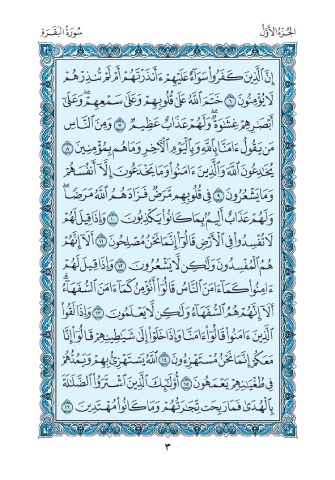 الجزء الأول
سورة البقرة
إِنَّ الَّذِينَ كَفَرُوا سَوَاءٌ عَلَيْهِمْ ءَأَنذَرْتَهُمْ أَمْ لَمْ تُنذِرْهُمْ
لَا يُؤْمِنُونَ ٦ خَتَمَ اللَّهُ عَلَىٰ قُلُوبِهِمْ وَعَلَىٰ سَمْعِهِمْ ۖ وَعَلَىٰ
أَبْصَٰرِهِمْ غِشَٰوَةٌ ۖ وَلَهُمْ عَذَابٌ عَظِيمٌ ٧ وَمِنَ النَّاسِ
مَن يَقُولُ ءَامَنَّا بِاللَّهِ وَبِالْيَوْمِ الْءَاخِرِ وَمَا هُم بِمُؤْمِنِينَ ٨
يُخَٰدِعُونَ اللَّهَ وَالَّذِينَ ءَامَنُوا وَمَا يَخْدَعُونَ إِلَّا أَنفُسَهُمْ
وَمَا يَشْعُرُونَ ٩ فِي قُلُوبِهِم مَّرَضٌ فَزَادَهُمُ اللَّهُ مَرَضًا ۖ
وَلَهُمْ عَذَابٌ أَلِيمٌ بِمَا كَانُوا يَكْذِبُونَ ١٠ وَإِذَا قِيلَ لَهُمْ
لَا تُفْسِدُوا فِي الْأَرْضِ قَالُوا إِنَّمَا نَحْنُ مُصْلِحُونَ ١١ أَلَا إِنَّهُمْ
هُمُ الْمُفْسِدُونَ وَلَٰكِن لَّا يَشْعُرُونَ ١٢ وَإِذَا قِيلَ لَهُمْ
ءَامِنُوا كَمَا ءَامَنَ النَّاسُ قَالُوا أَنُؤْمِنُ كَمَا ءَامَنَ السُّفَهَاءُ ۗ
أَلَا إِنَّهُمْ هُمُ السُّفَهَاءُ وَلَٰكِن لَّا يَعْلَمُونَ ١٣ وَإِذَا لَقُوا
الَّذِينَ ءَامَنُوا قَالُوا ءَامَنَّا وَإِذَا خَلَوْا إِلَىٰ شَيَٰطِينِهِمْ قَالُوا إِنَّا
مَعَكُمْ إِنَّمَا نَحْنُ مُسْتَهْزِءُونَ ١٤ اللَّهُ يَسْتَهْزِئُ بِهِمْ وَيَمُدُّهُمْ
فِي طُغْيَٰنِهِمْ يَعْمَهُونَ ١٥ أُولَٰئِكَ الَّذِينَ اشْتَرَوُا الضَّلَٰلَةَ
بِالْهُدَىٰ فَمَا رَبِحَت تِّجَٰرَتُهُمْ وَمَا كَانُوا مُهْتَدِينَ ١٦
٣